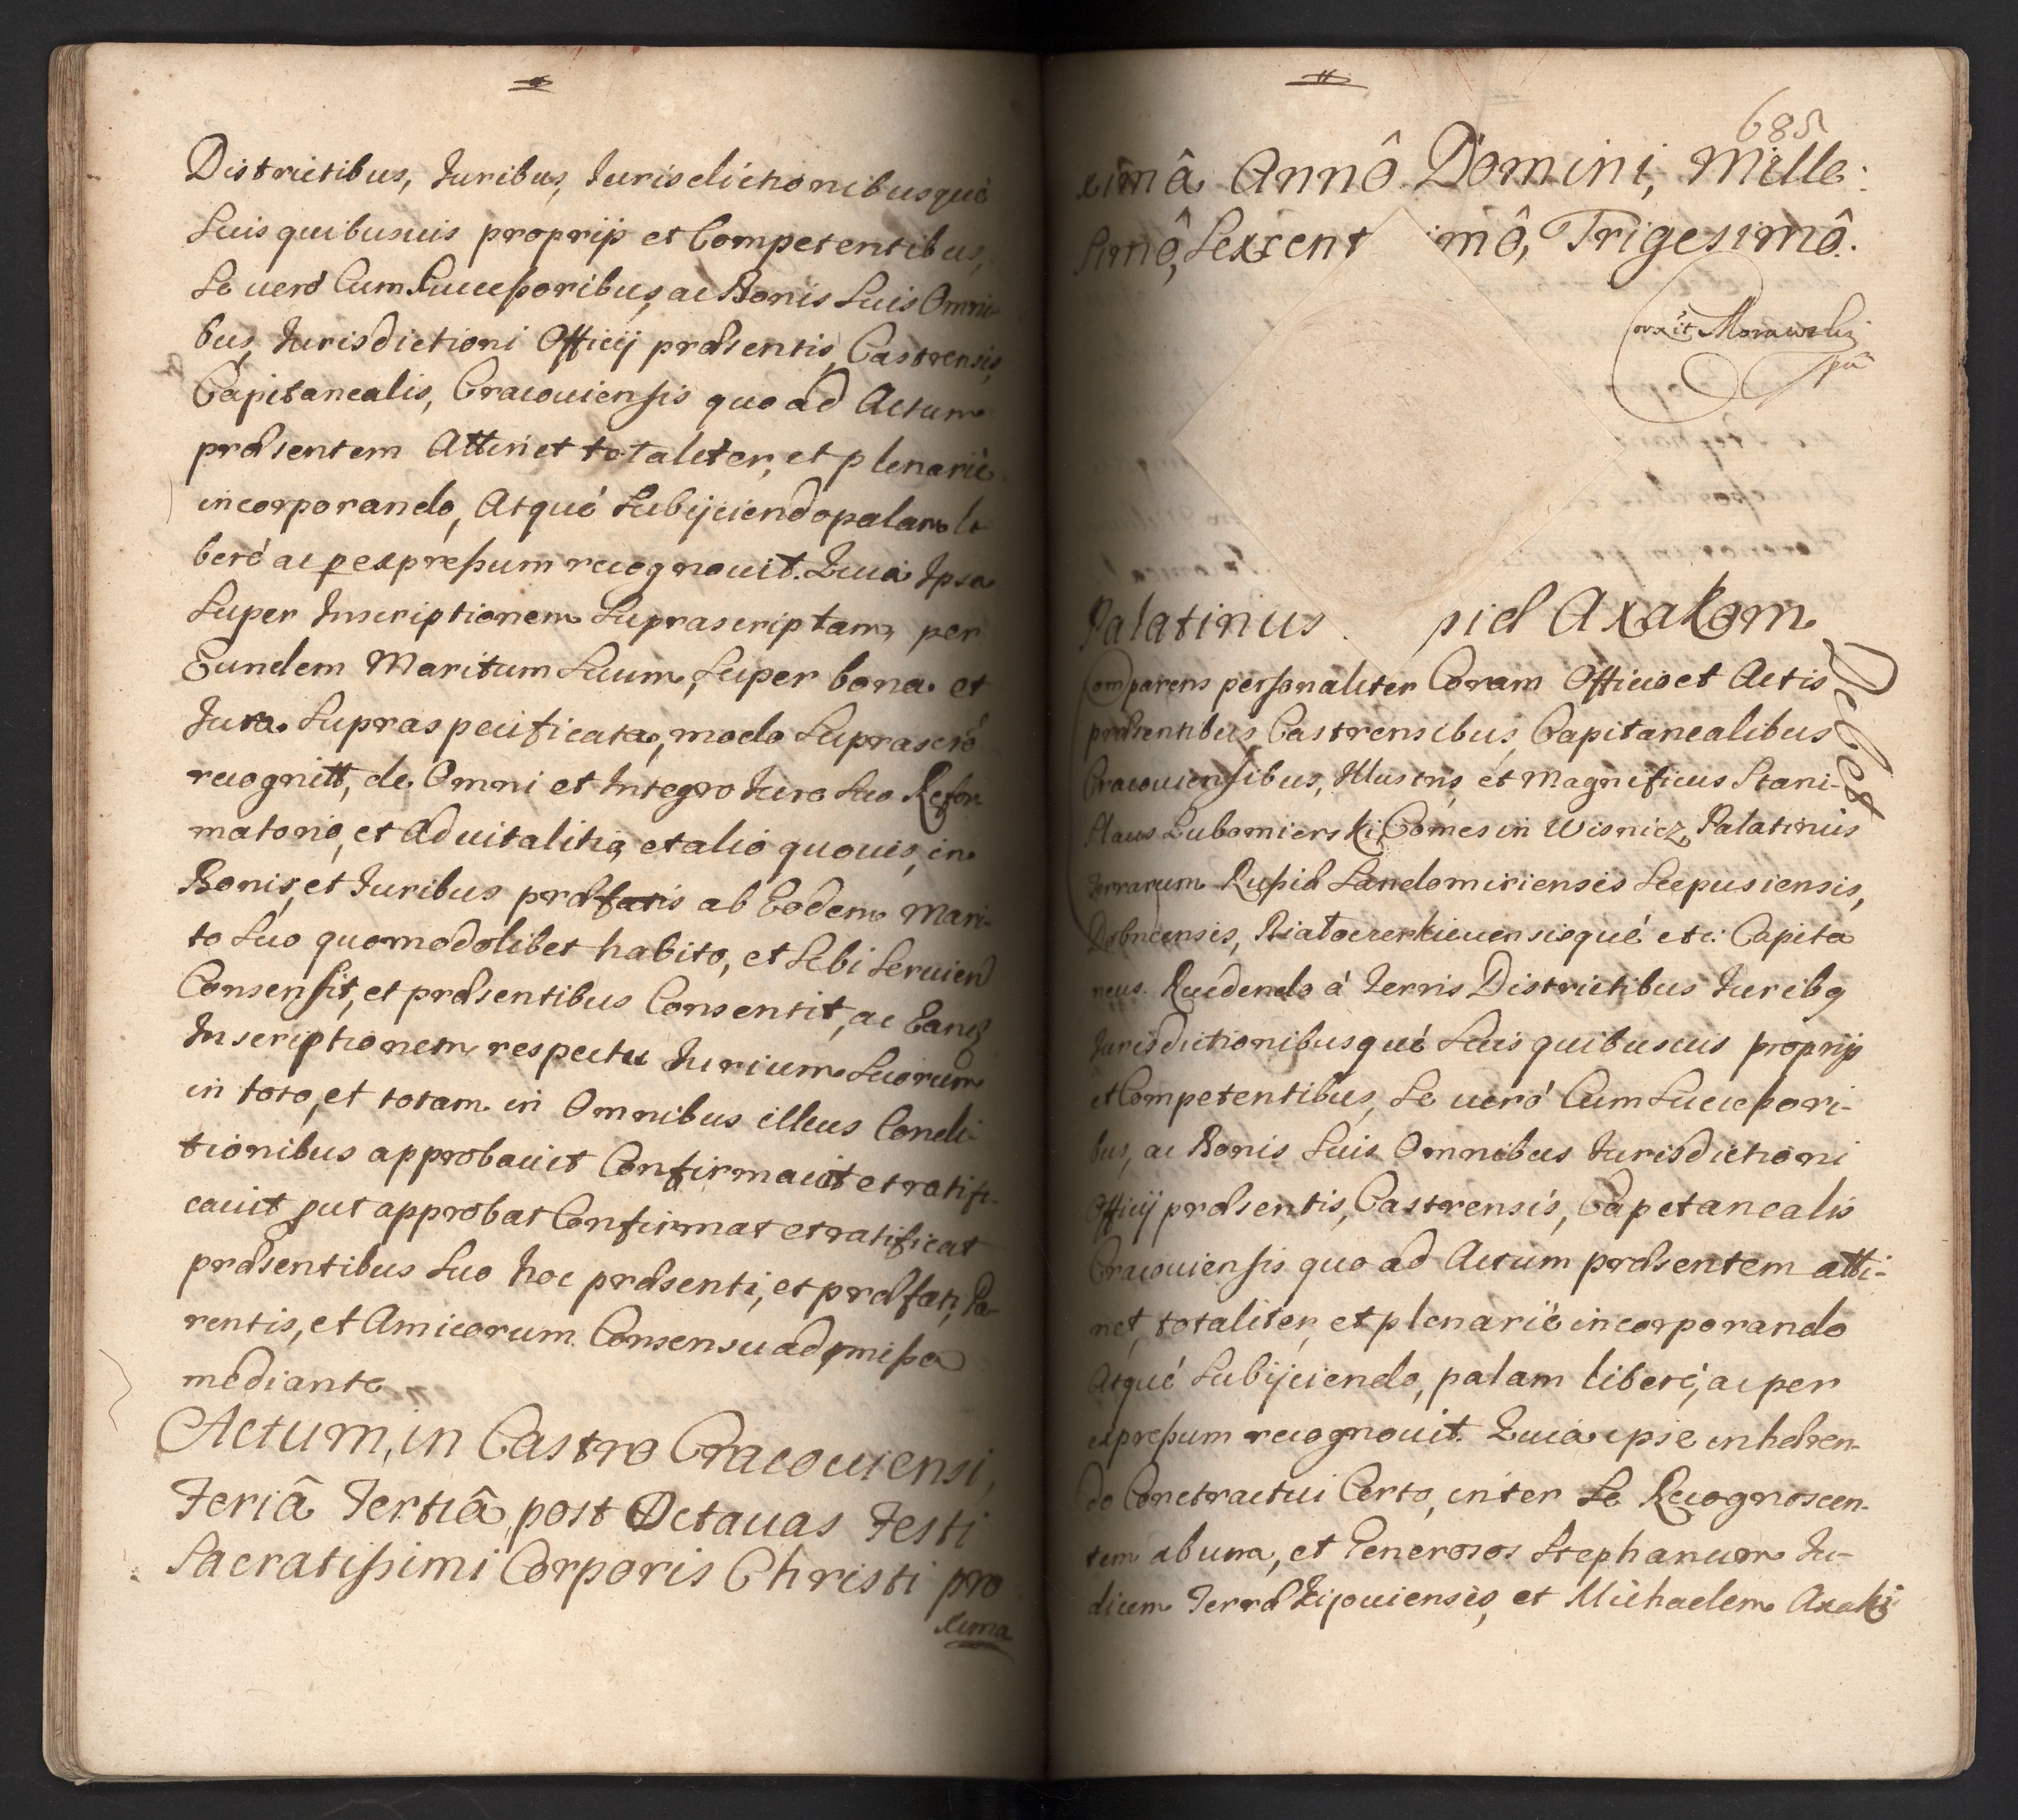 Districtibus, Juribus, Jurisdictionibusquè
Suis quibusuis proprijs et Competentibus,
Se uerò Cum Successoribus, ac Bonis Suis Omni-
bus, Jurisdictioni Officij præsentis, Castrensis,
Capitanealis, Cracouiensis quo ad Actum
præsentem Attinet totaliter, et plenariè
incorporando, Atquè Subijciendo palam li
berè ac per expressum recognouit. Quia Ipsa
Super Inscriptionem Suprascriptam, per
Eundem Maritum Suum, Super bona et
Jura Supraspecificata, modo Suprascrō
recognitt, de Omni et Integro Jure Suo Refor
matorio, et Aduitalitio, et alio quouis, in
Bonis, et Juribus præfatis ab Eodem Mari-
to Suo quomodolibet habito, et Sibi Seruien
Consensit, et præsentibus Consentit, ac Eanq
Inscriptionem respectu Jurium Suorum
in toto, et totam in Omnibus illius Condi-
tionibus approbauit Confirmauit et ratifi-
cauit put approbat Confirmat et ratificat
præsentibus Suo hoc præsenti, et præfati, Pa-
rentis, et Amicorum Consensu ad pmissa
mediante
Actum, in Castro Cracouiensi,
Feriâ Tertiâ, post Octauas Festi
Sacratissimi Corporis Christi pro
xima
685
ximâ Annô Domini, Mille:
simô, Sexcent imô, Trigesimô.
Corrxit Morawski
pā
Palatinus piæ Axakom
Debet
Comparens personaliter Coram Officio et Actis
præsentibus Castrensibus, Capitanealibus
Cracouiensibus, Illustris, et Magnificus Stani-
slaus Lubomierski, Comes in Wisnicz, Palatinus
terrarum Russiæ Sandomiriensis Scepusiensis,
Dobnensis, Białocerkieuensisquè etc: Capita
neus. Recedendo à Terris Districtibus Juribq
Jurisdictionibusquè Suis quibusuis proprijs
et Competentibus, Se uerò Cum Successori-
bus, ac Bonis Suis Omnibus Jurisdictioni
Officij præsentis, Castrensis, Capetanealis
Cracouiensis quo ad Actum præsentem atti-
net, totaliter, et plenariè incorporando
Atquè Subijciendo, palam liberè, ac per
expressum recognouit. Quia ipse inhæren-
do Contractui Certo, inter Se Recognoscen-
tem ab una, et Generosos Stephanum Ju-
dicem Terræ Kijouiensis, et Michaelem Axaki